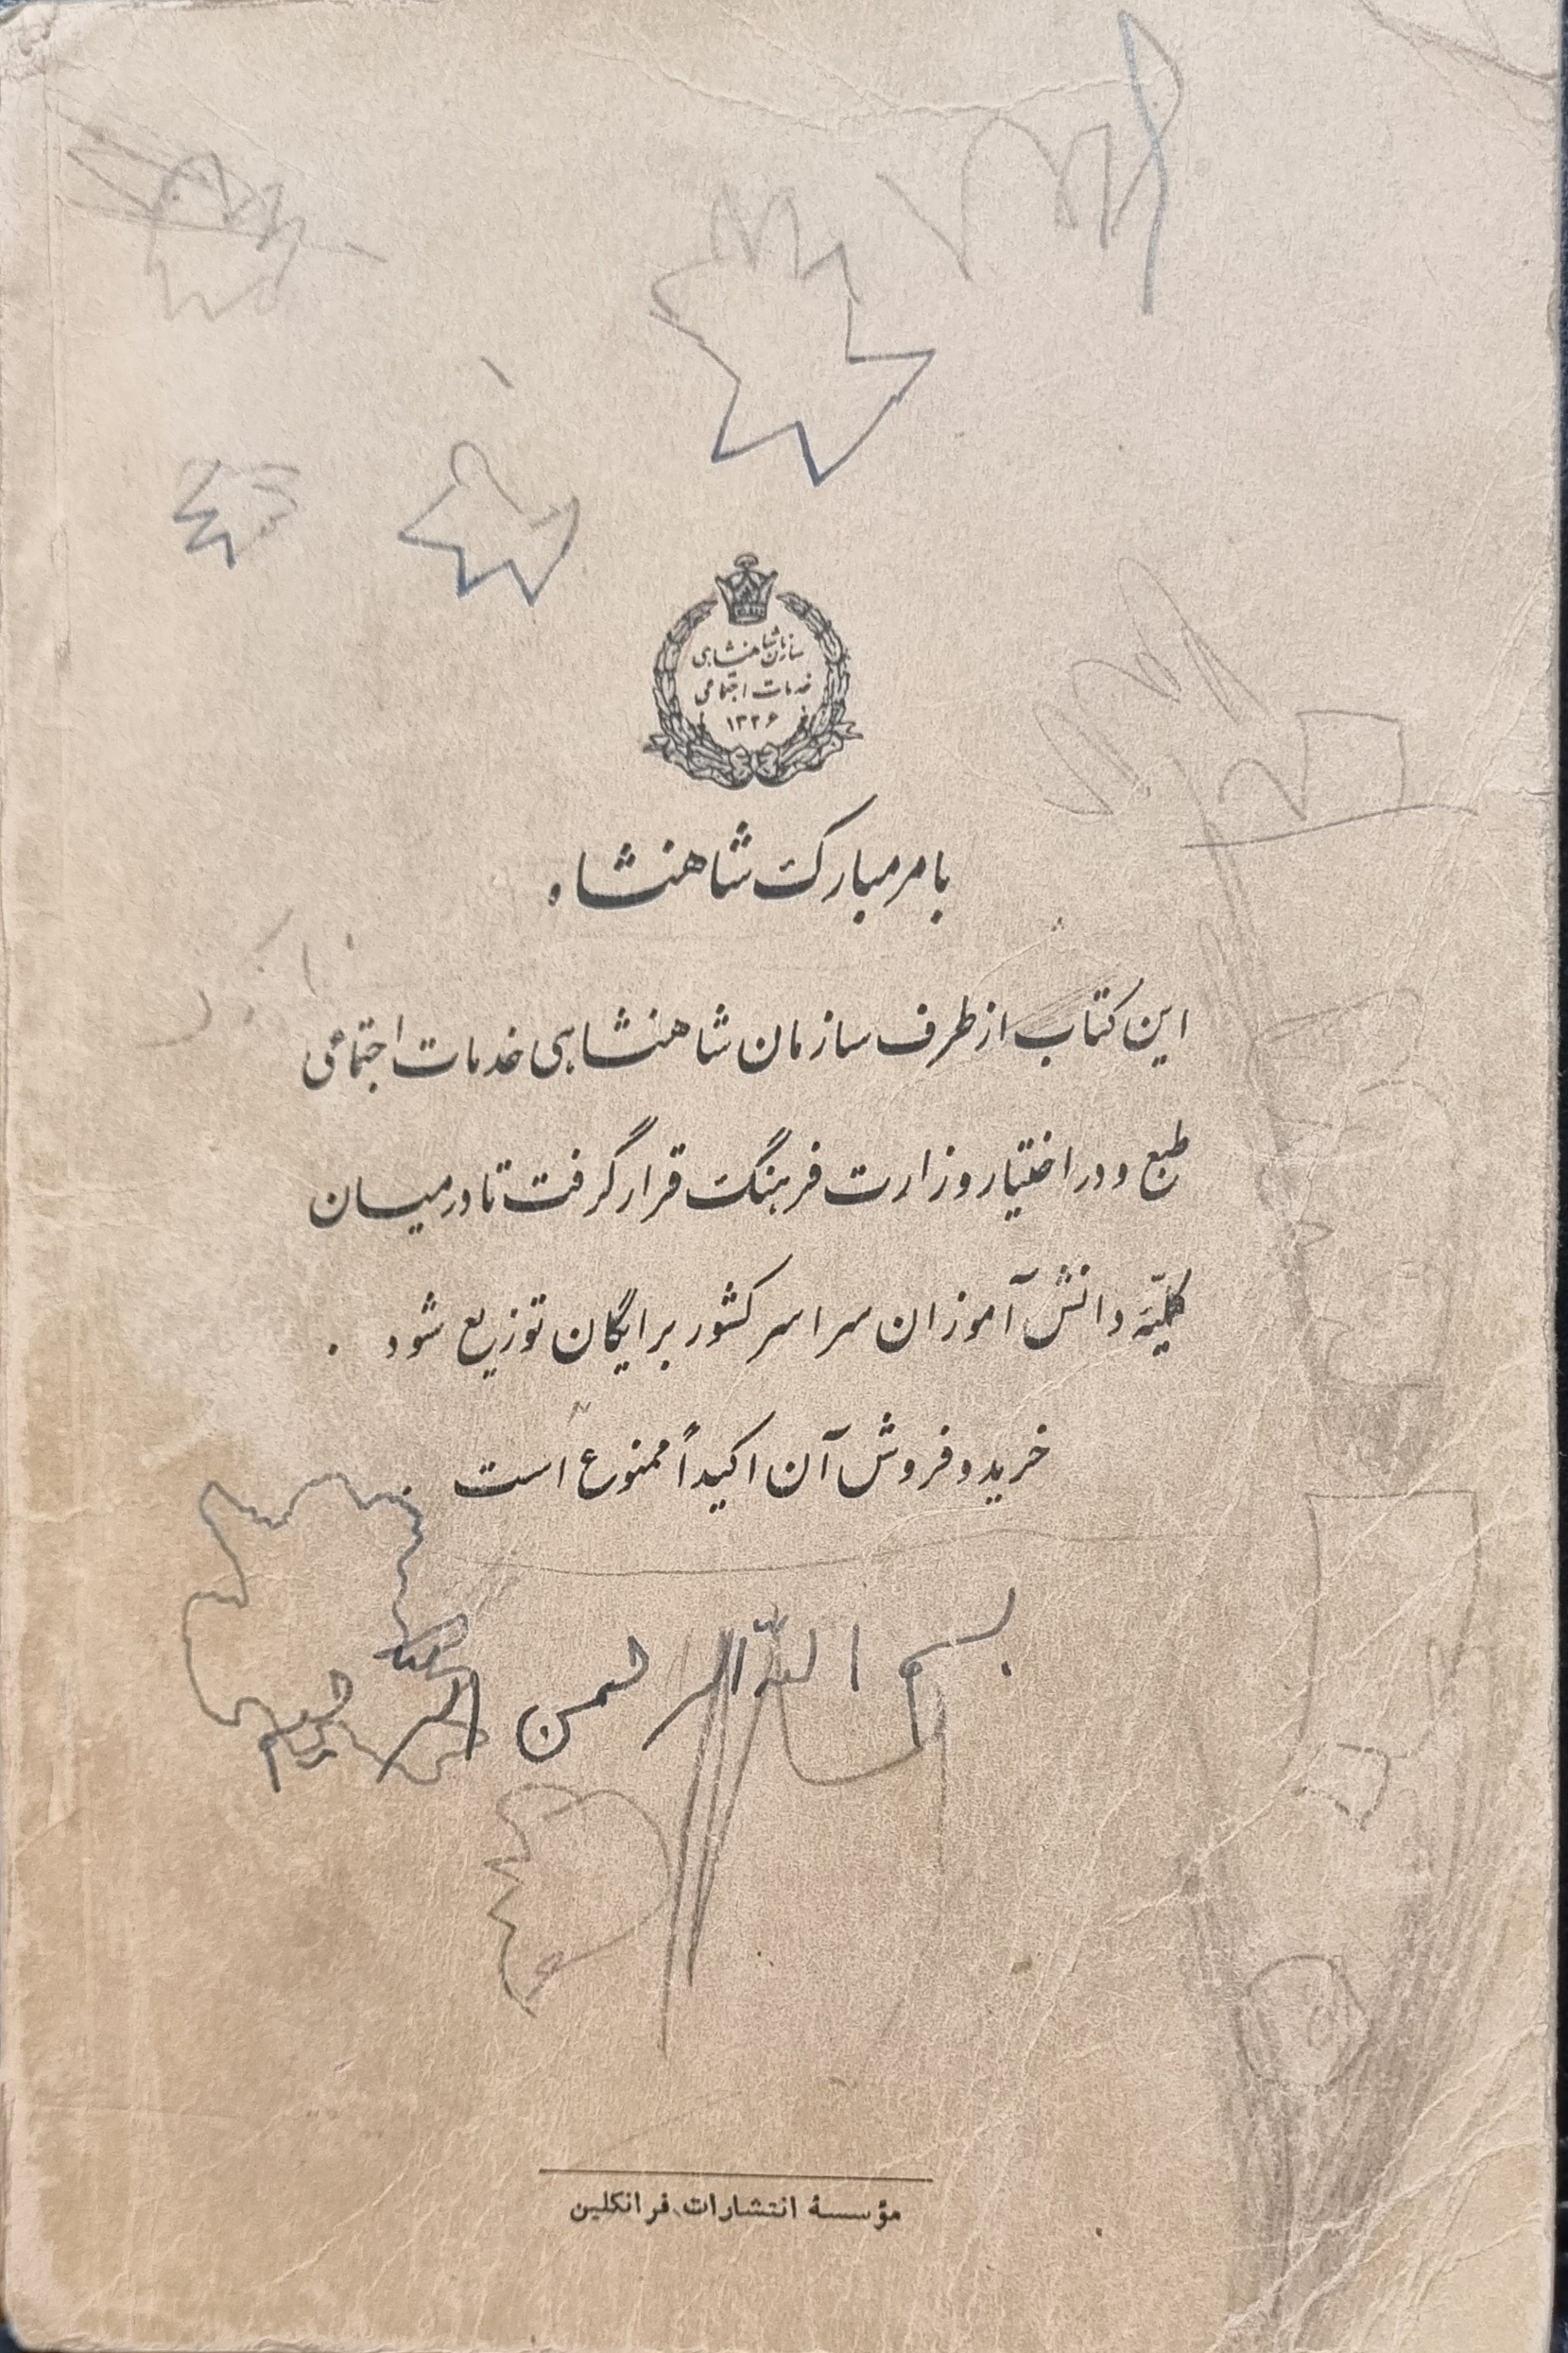 سازمان شاهنشاهی
خدمات اجتماعی
۱۳۲۶
بامر مبارک شاهنشاه
این کتاب از طرف سازمان شاهنشاهی خدمات اجتماعی
طبع و در اختیار وزارت فرهنگ قرار گرفت تا در میان
کلیّهٔ دانش آموزان سراسر کشور برایگان توزیع شود .
خرید و فروش آن اکیداً ممنوع است
بسم اللّه الرحمن الرحیم
مؤسسهٔ انتشارات فرانکلین